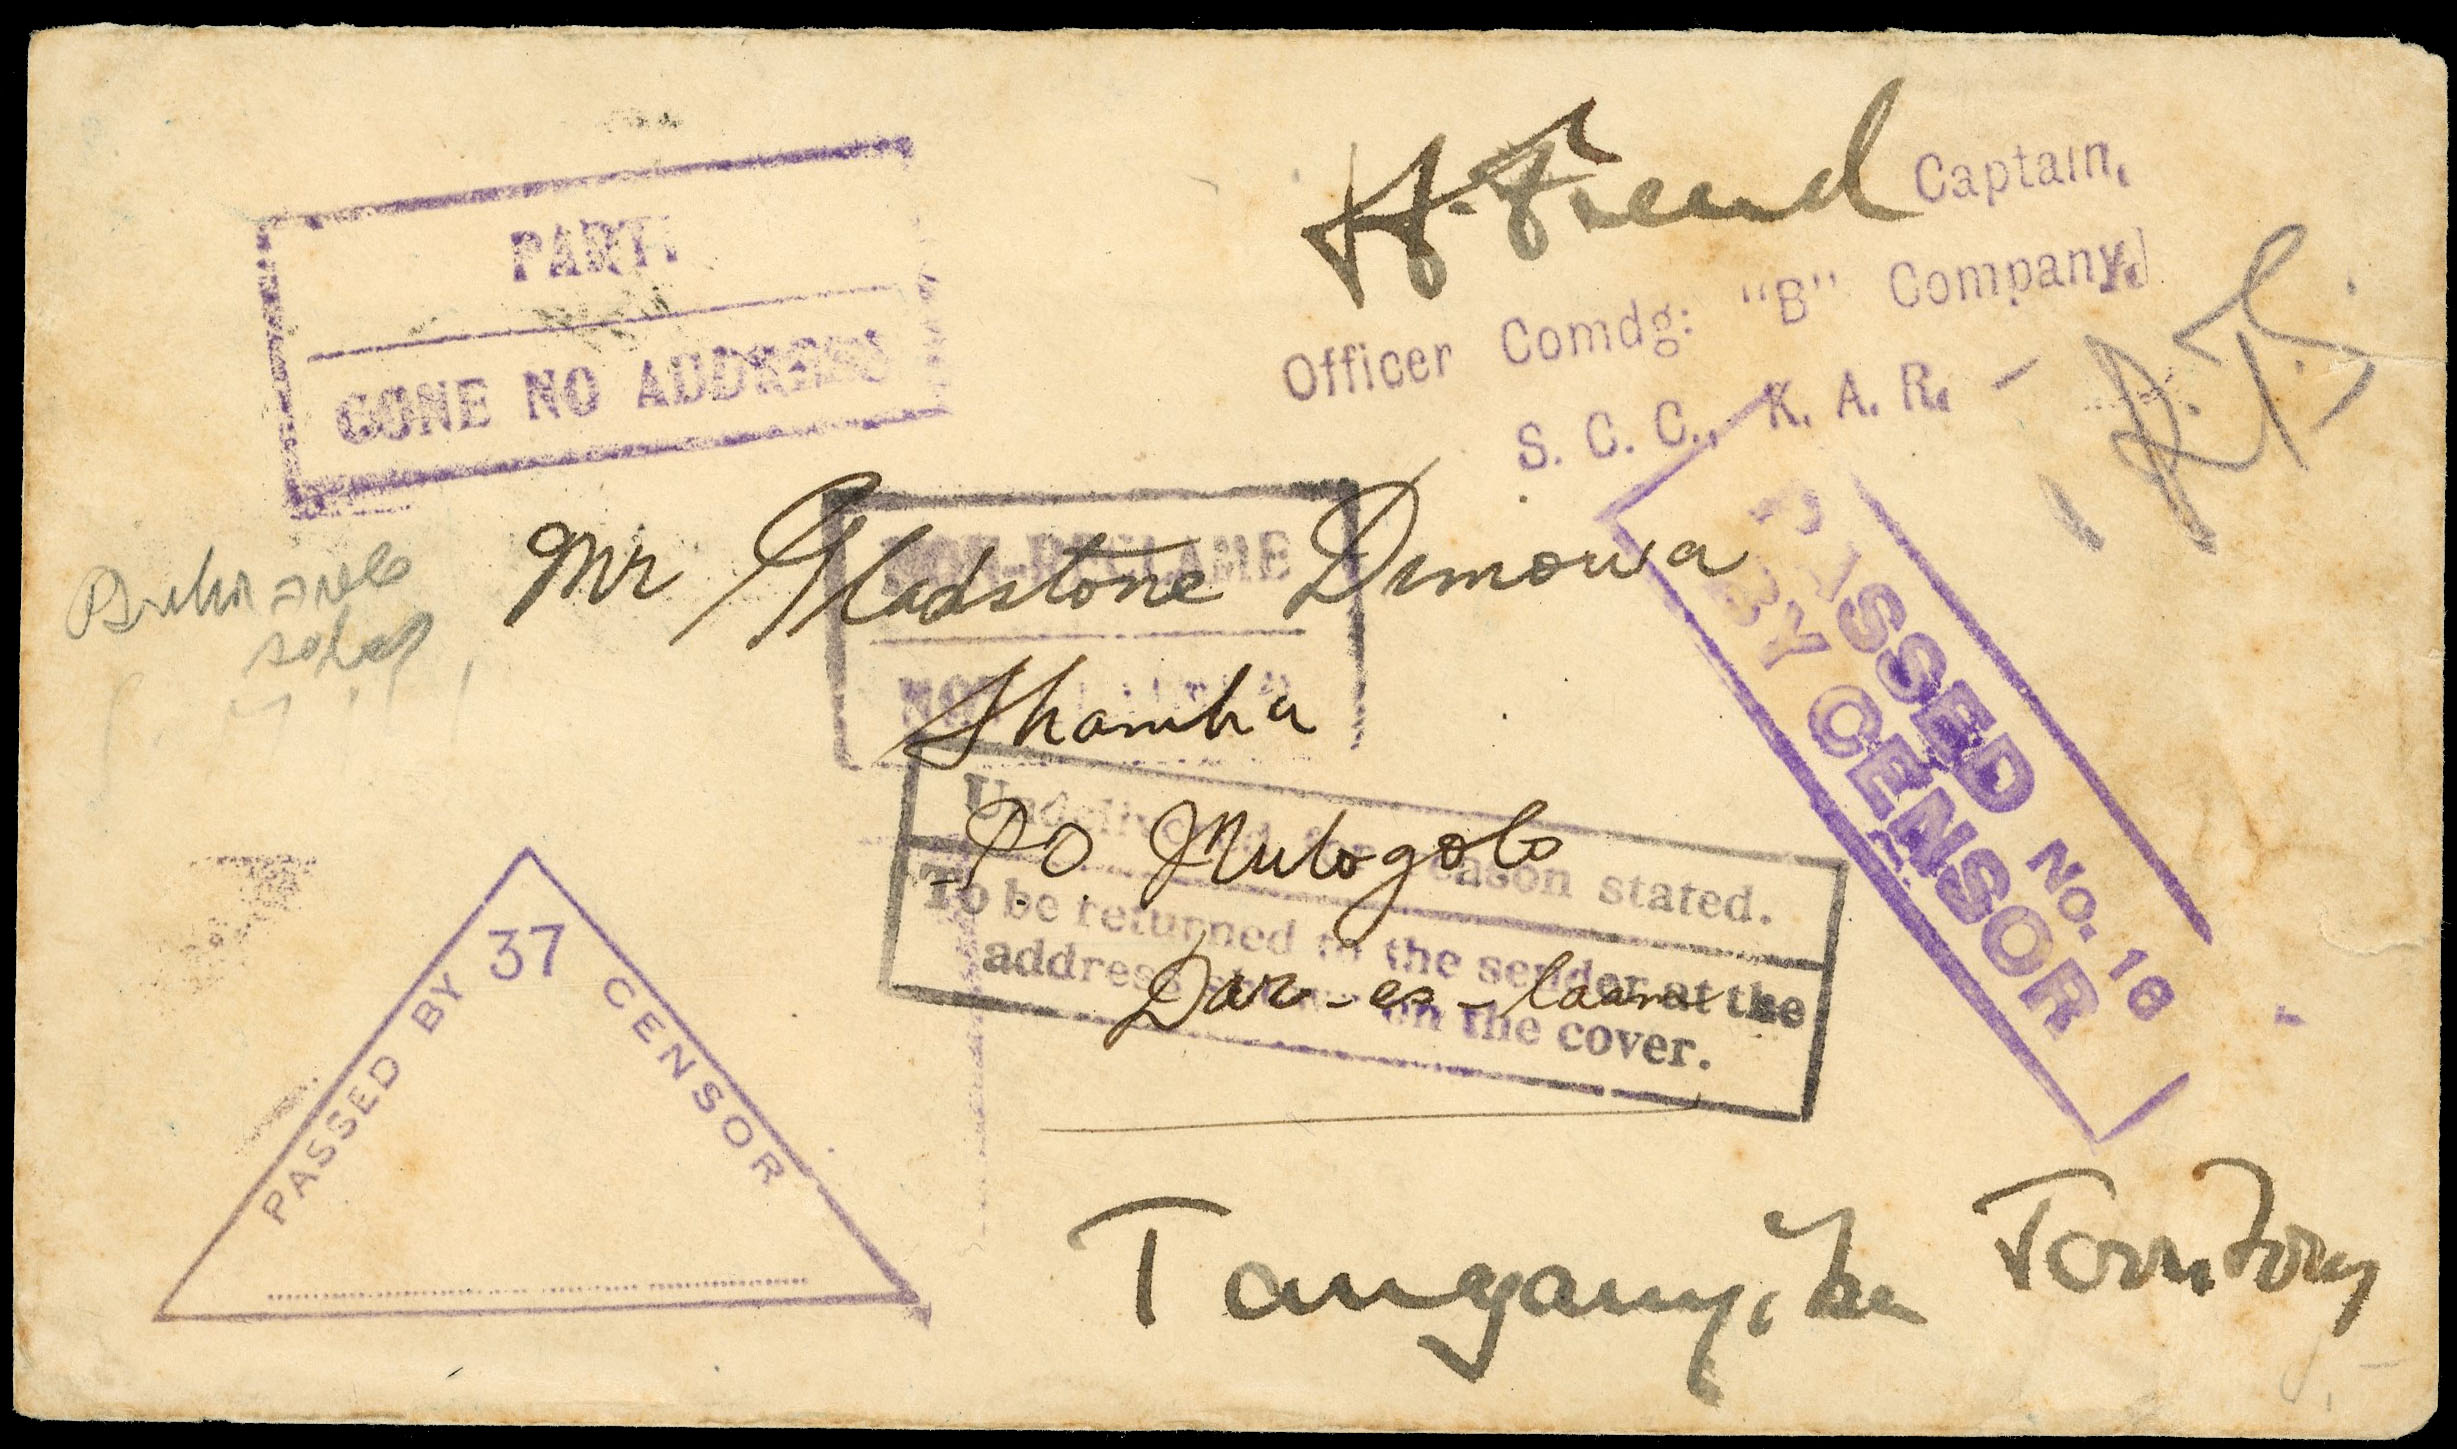 PARTI
GONE NO ADDRESS
H. Friend Captain,
Officer Comdg: "B" Company,
S. C. C., K. A. R.
R.T.S.
NON-RECLAME
NOT
Mr Gladstone Dimowa
Shamba
PO. Mulogolo
Dar-es-laam
Undelivered for reason stated.
To be returned to the sender at the
address shown on the cover.
PASSED No. 16
BY CENSOR
PASSED BY 37 CENSOR
Tanganyika Territory